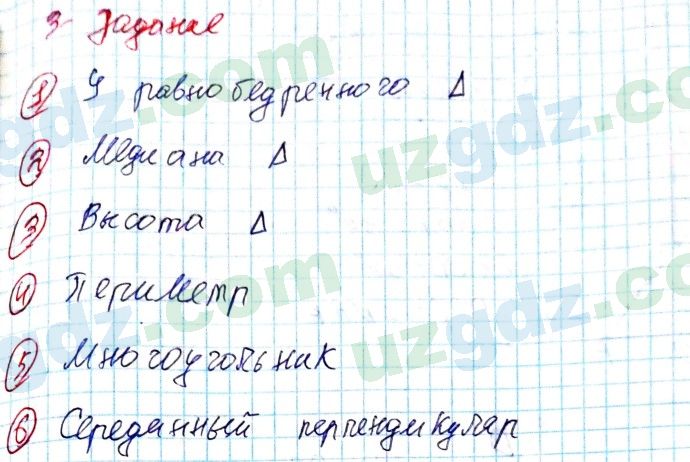 3 Задание
1 У равнобедренного Δ
2 Медиана Δ
3 Высота Δ
4 Периметр
5 Многоугольник
6 Серединный перпендикуляр
uzgdz.com
uzgdz.com
uzgdz.com
uzgdz.com